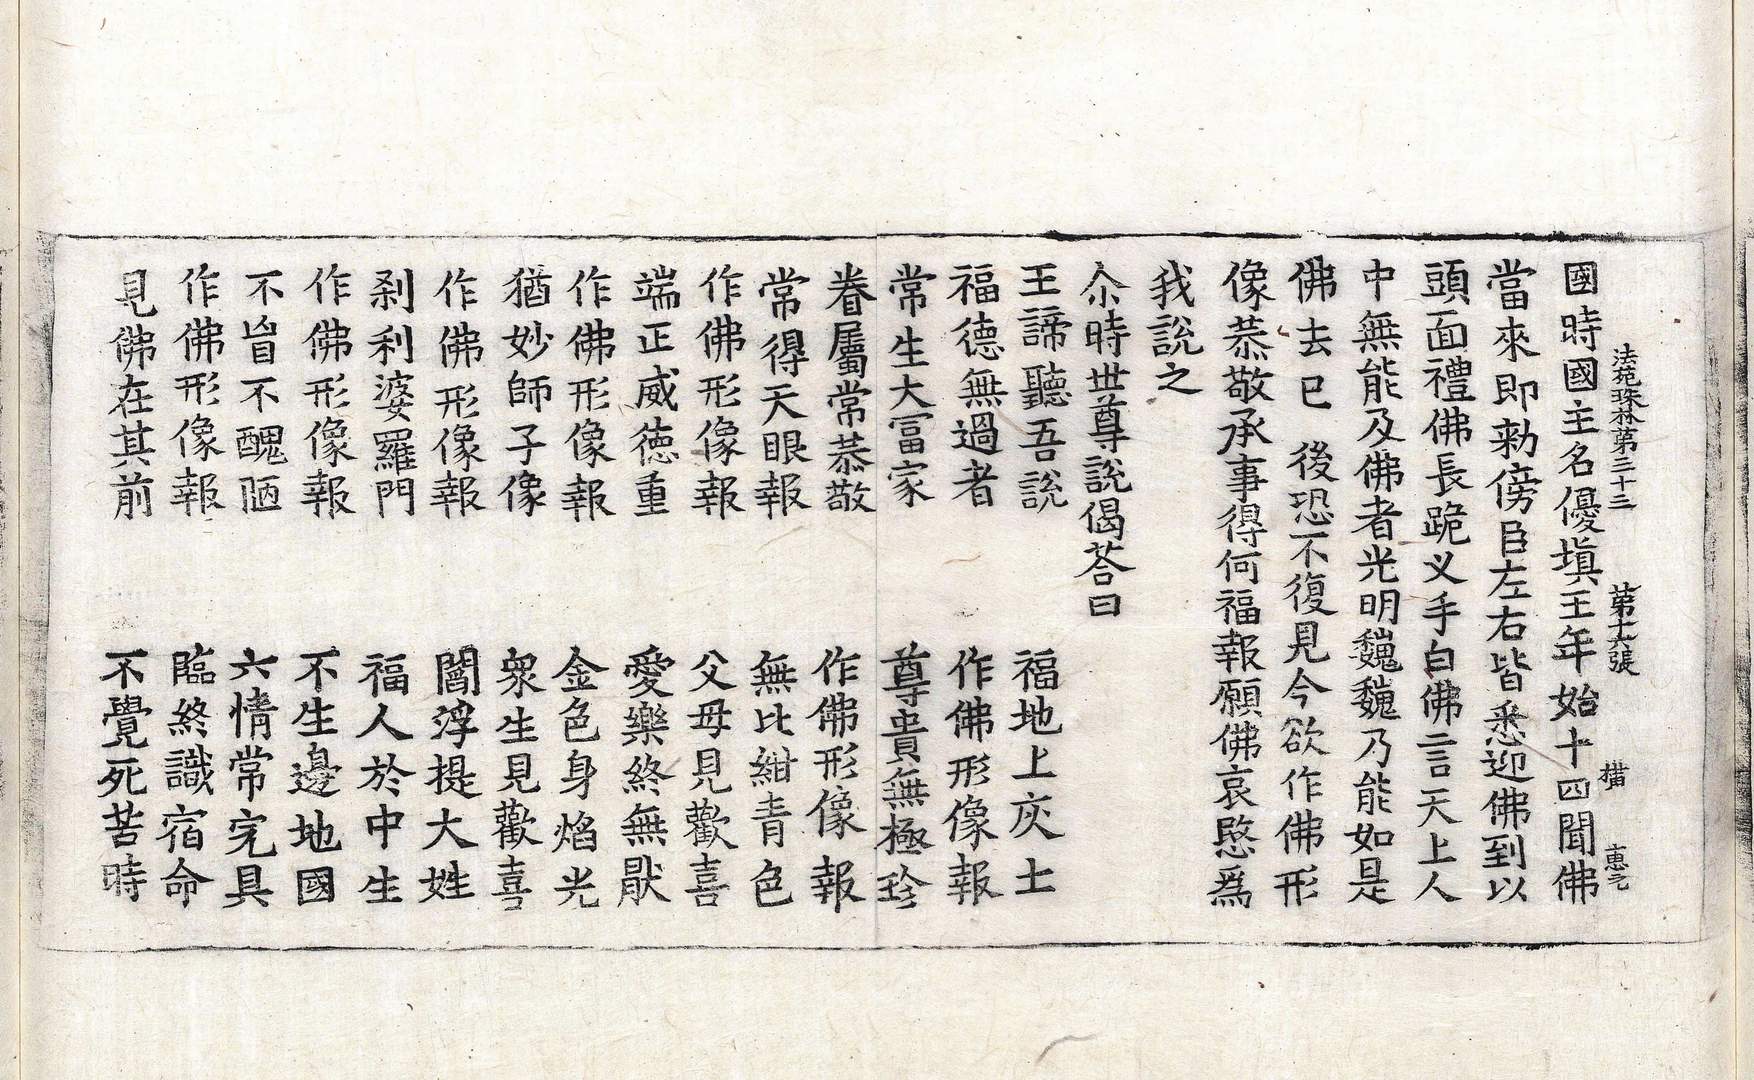 法苑珠林第三十三　第十六張　横　惠元
國時國主名優填王年始十四聞佛
當來即勑傍臣左右皆悉迎佛到以
頭面禮佛長跪义手白佛言天上人
中無能及佛者光明巍巍乃能如是
佛去已後恐不復見今欲作佛形
像恭敬承事得何福報願佛哀愍爲
我說之
尒時世尊說偈荅曰
王諦聽吾說　福地上灰土
福德無過者　作佛形像報
常生大冨家　尊貴無極珍
眷屬常恭敬　作佛形像報
常得天眼報　無比紺青色
作佛形像報　父母見歡喜
端正威德重　愛樂終無猒
作佛形像報　金色身焰光
猶妙師子像　衆生見歡喜
作佛形像報　閻浮提大姓
刹利婆羅門　福人於中生
作佛形像報　不生邊地國
不盲不醜陋　六情常完具
作佛形像報　臨終識宿命
見佛在其前　不覺死苦時